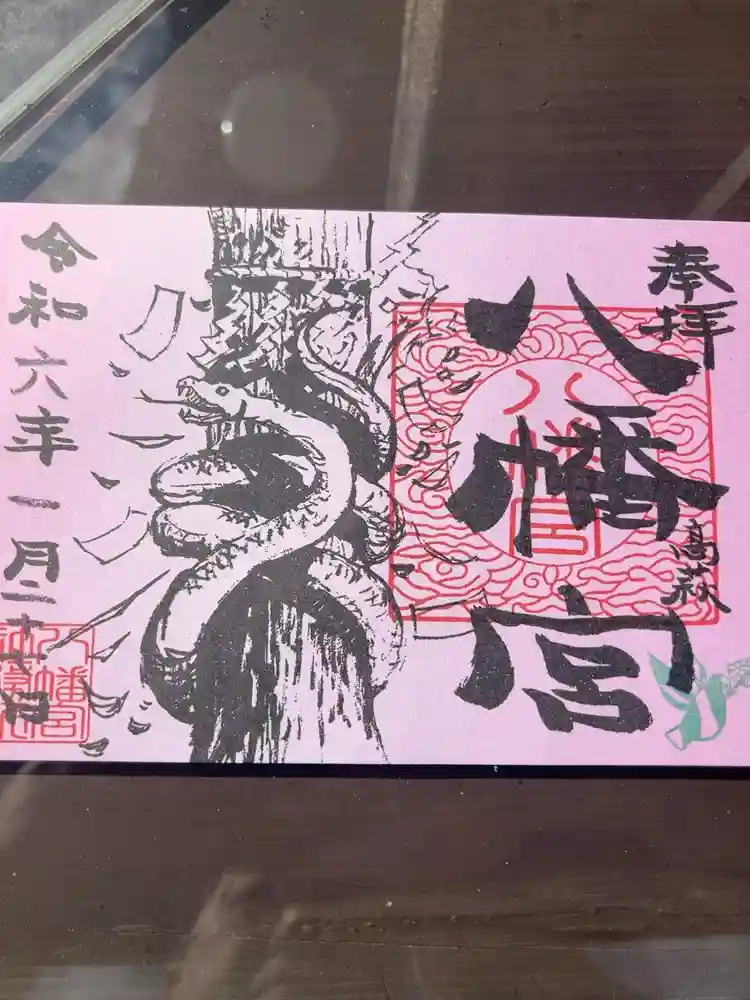 奉拝
高萩
八幡宮
八幡宮
令和六年一月二十七日